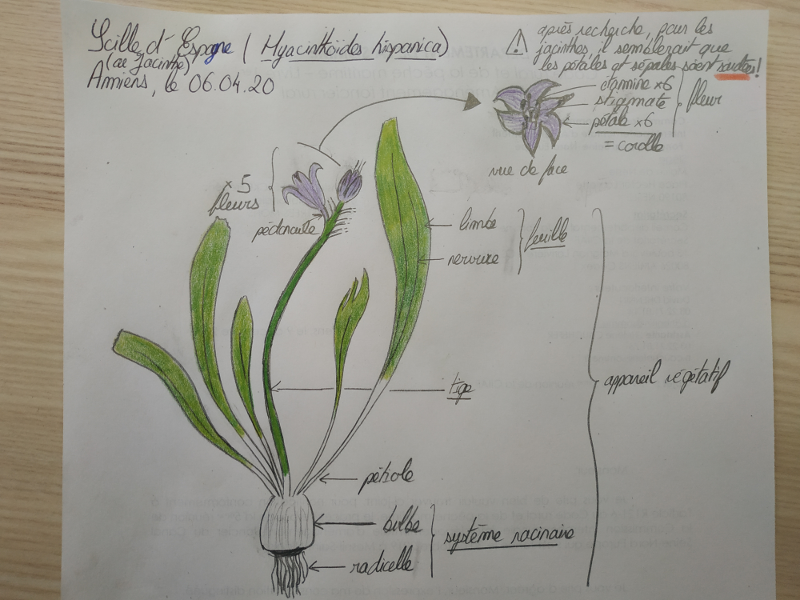 Scille d'Espagne (Hyacinthoïdes hispanica)
(ac Jacinthe)
Amiens, le 06.04.20
⚠ après recherche, pour les
jacinthes, il semblerait que
les pétales et sépales soient soudés!
étamine x6
stigmate
pétale x6
= corolle
fleur
vue de face
x5
fleurs
pédoncule
limbe
nervure
feuille
tige
appareil végétatif
pétiole
bulbe
radicelle
système racinaire